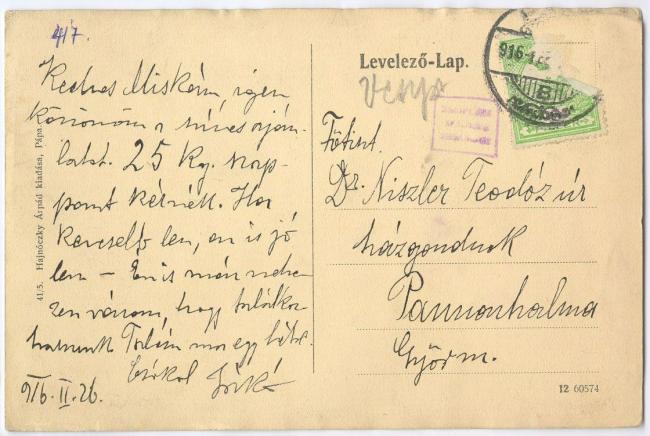 417.
Kedves Miskám, igen
köszönöm a szíves aján-
latot. 25 Kg. szap-
pant kérnék. Ha
kevesebb len, en is jó
len – Én is már nehe-
zen várom, hogy találkoz-
hassunk Talán
Csókol
916. II. 26.
41/5. Hajnóczky Árpád kiadása, Pápa.
Levelező-Lap.
916
B
Főtiszt.
Dr. Niszler Teodóz úr
házgondnok
Pannonhalma
Győrm.
12 60574